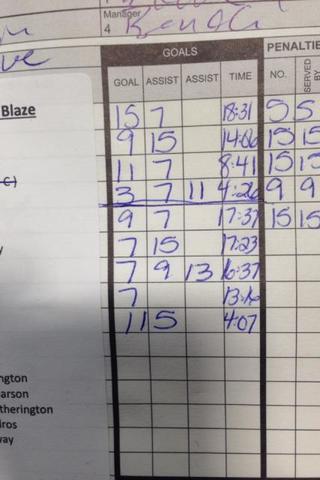 Manager
4
GOALS PENALTIE
GOAL ASSIST ASSIST TIME NO. SERVED BY
Blaze
15 7 18:31 5 5
9 15 14:06 15 15
11 7 8:41 15 15
C) 3 7 11 4:26 9 9
9 7 17:37 15 15
y 7 15 17:23
7 9 13 16:37
7 13:16
11 5 4:07
ngton
arson
therington
iros
way